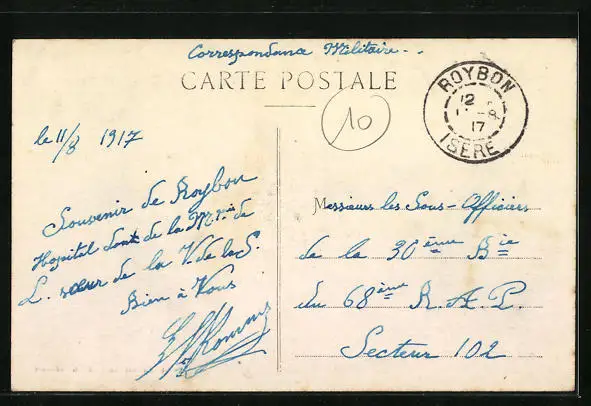 Correspondance Militaire
CARTE POSTALE
ROYBON
12
8
17
ISERE
10
le 11/8 1917
Souvenir de Roybon
Hopital de la de
L. de la V. de la S.
Bien à Vous
Messieurs les Sous-Officiers
de la 30ème Bie
du 68ème R. A. P.
Secteur 102